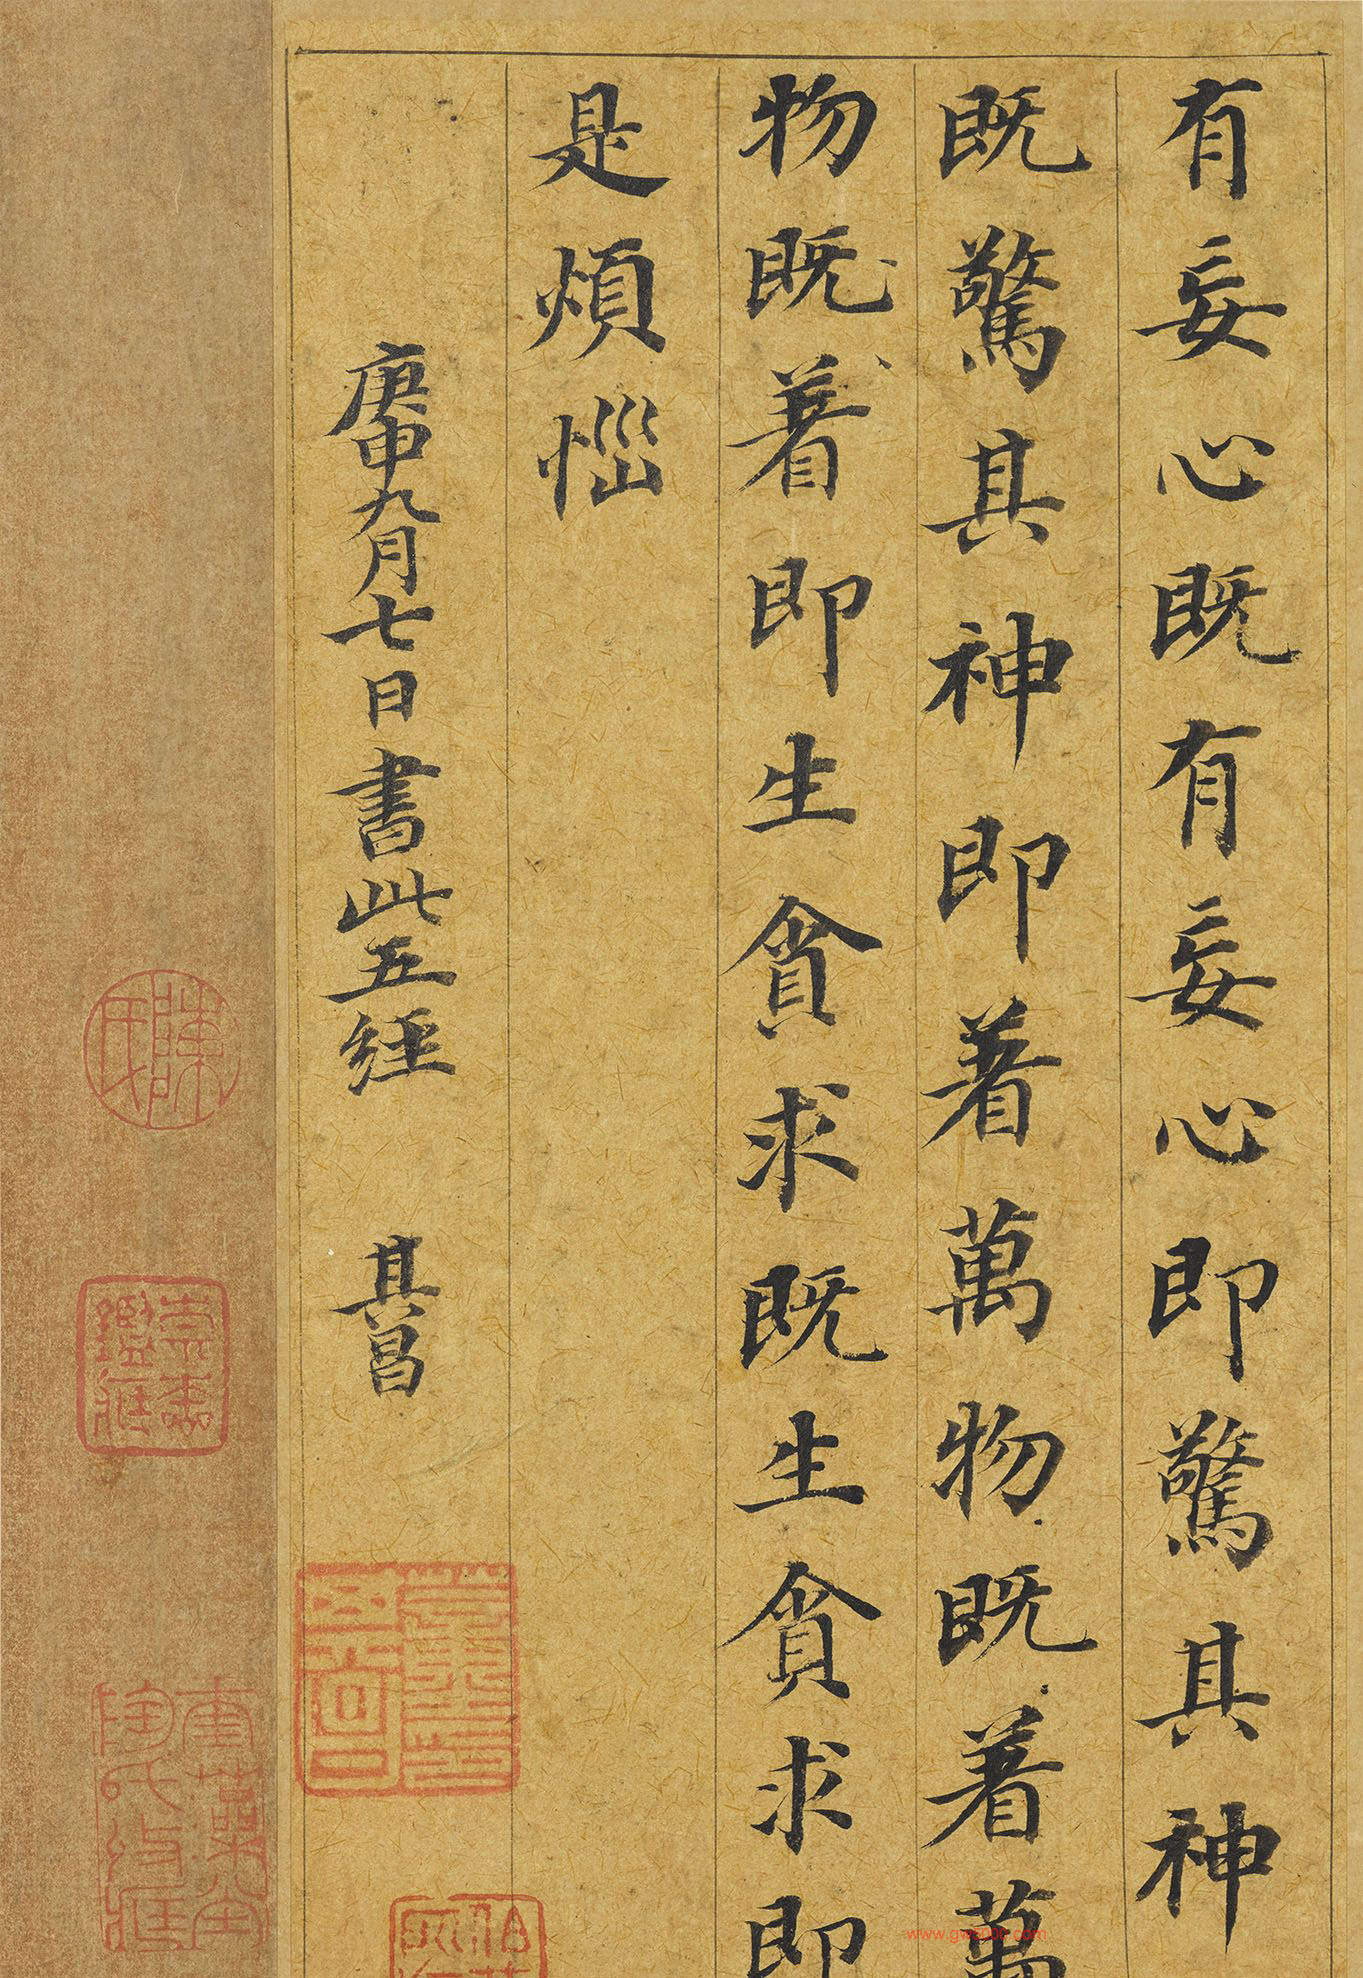 有妄心既有妄心即驚其神
既驚其神即着萬物既着萬
物既着即生貪求既生貪求即
是煩惱
庚申九月七日書此五經 其昌
陳氏
鑑藏
陶氏
www.gw5000.com